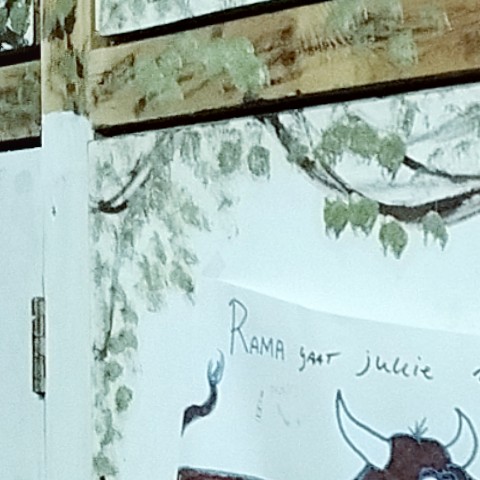 RAMA gaat jullie